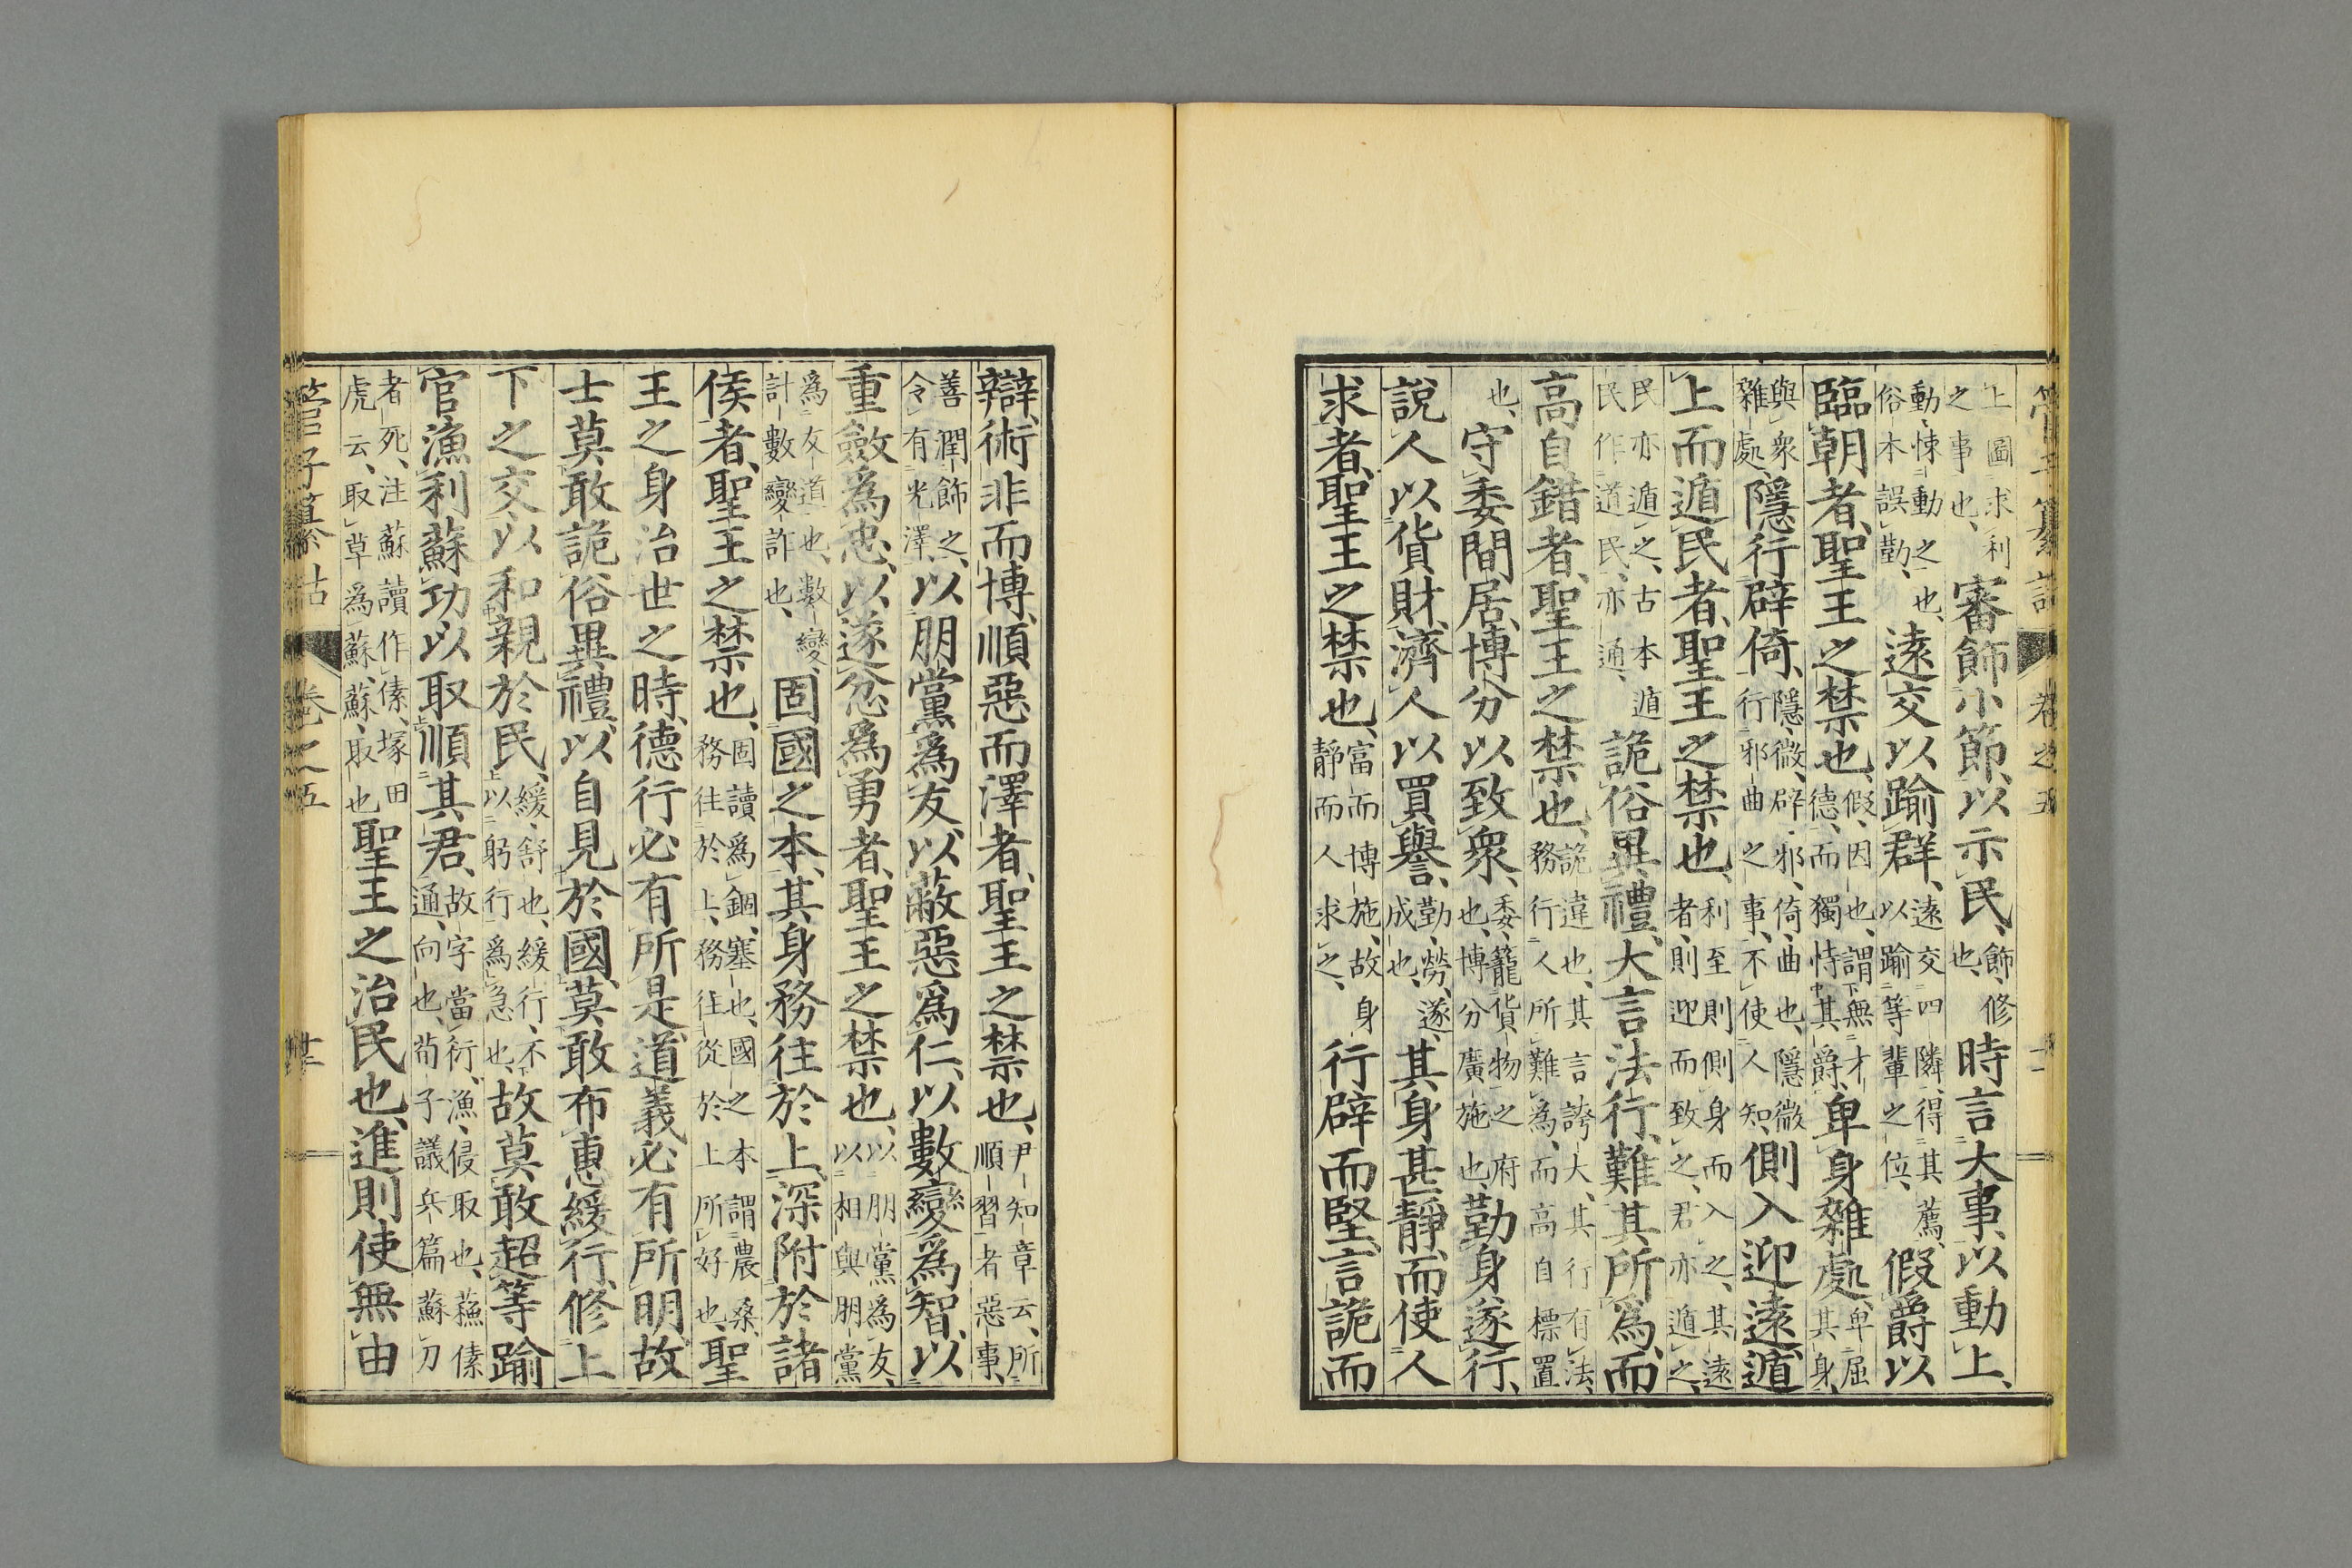 上圖求利之事也、審飾小節、以示民、飾、修也、時言大事、以動上、
動、悚動之也、俗本誤勤、遠交以踰群、遠交四隣、得其薦、以踰等輩之位、假爵以
臨朝者、聖王之禁也、假、因也、謂無才德、而獨恃其爵、卑身雜處、卑屈其身、
與衆雜處、隱行辟倚、隱、微、辟、邪、倚、曲也、隱微行邪曲之事、不使人知、側入迎遠、遁
上而遁民者、聖王之禁也、利至則側身而入之、其遠者、則迎而致之、君亦遁之、
民亦遁之、古本遁民作道民、亦通、詭俗異禮、大言法行、難其所爲、而
高自錯者、聖王之禁也、詭違也、其言誇大、其行有法、務行人所難爲、而高自標置
也、守委閒居、博分以致衆、委、籠貨物之府也、博分廣施也、勤身遂行、
說人以貨財、濟人以買譽、勤、勞、遂、成也、其身甚靜、而使人
求者、聖王之禁也、富而博施、故身靜而人求之、行辟而堅、言詭而
辯、術非而博、順惡而澤者、聖王之禁也、尹知章云、所順習者惡事、
善潤飾之、令有光澤、以朋黨爲友、以蔽惡爲仁、以數變爲智、以
重斂爲忠、以遂忿爲勇者、聖王之禁也、以朋黨爲友、以相與朋黨
爲友道也、數變、計數變詐也、固國之本、其身務往於上、深附於諸
侯者、聖王之禁也、固讀爲錮、塞也、國之本謂農桑、務往於上、務往從於上所好也、聖
王之身治世之時、德行必有所是、道義必有所明、故
士莫敢詭俗異禮、以自見於國、莫敢布惠緩行、修上
下之交、以和親於民、緩、舒也、緩行、不以躬行爲急也、故莫敢超等踰
官、漁利蘇功以取順其君、故字當衍、漁、侵取也、蘇傃通、向也、荀子議兵篇蘇刀
者死、注蘇讀作傃、塚田虎云、取草爲蘇、蘇、取也聖王之治民也、進則使無由
管子纂詁 卷之五